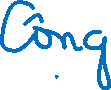 Công